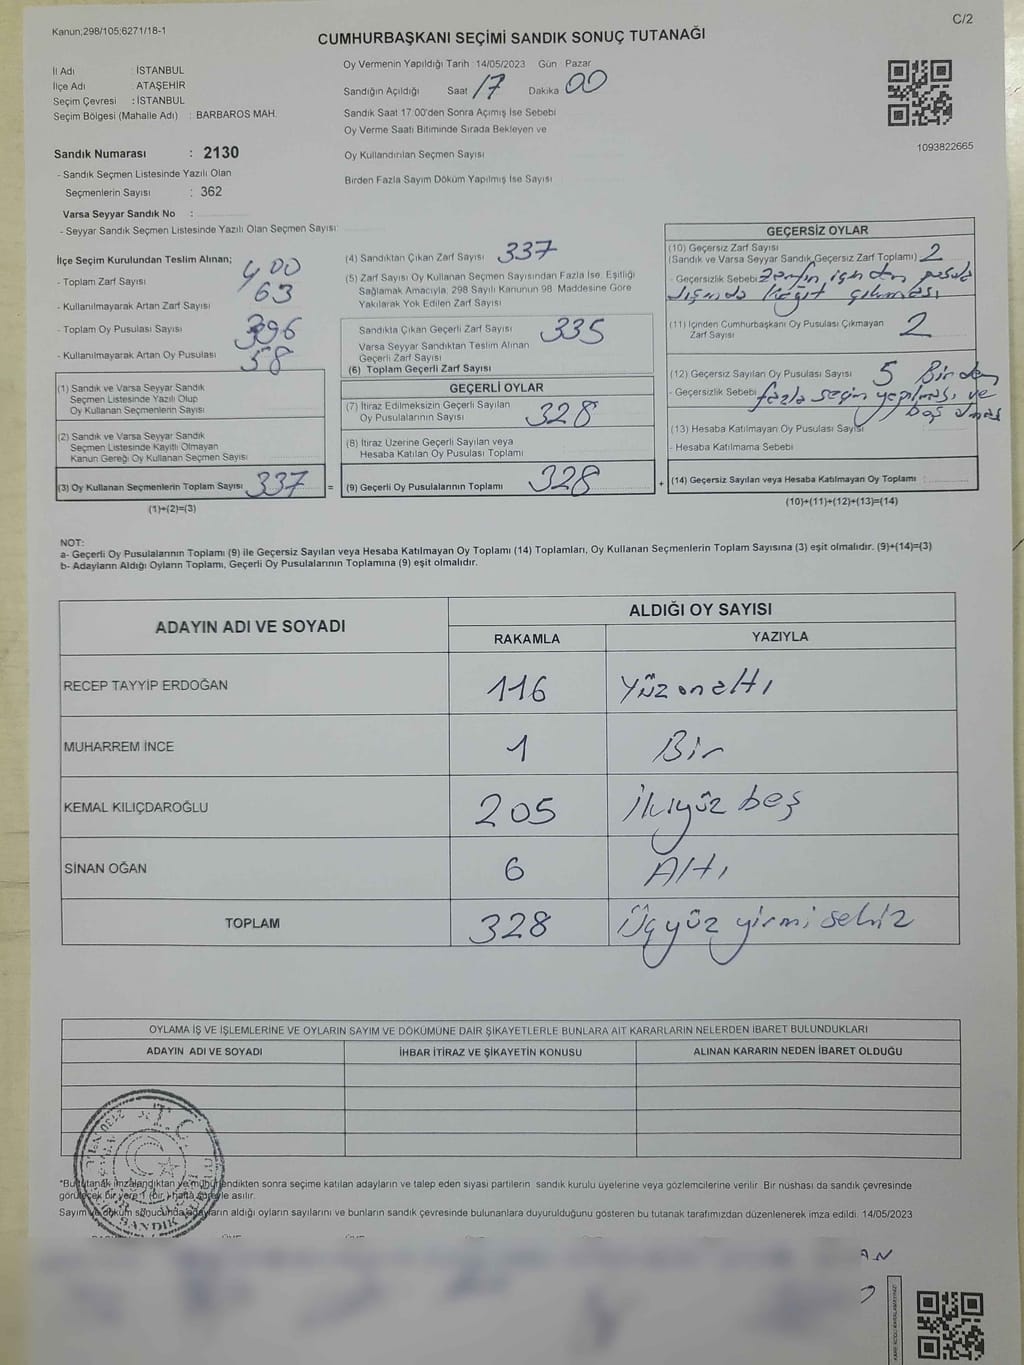 Kanun;298/105;6271/18-1
C/2
CUMHURBAŞKANI SEÇİMİ SANDIK SONUÇ TUTANAĞI
İl Adı : İSTANBUL
İlçe Adı : ATAŞEHİR
Seçim Çevresi : İSTANBUL
Seçim Bölgesi (Mahalle Adı) : BARBAROS MAH.
Sandık Numarası : 2130
- Sandık Seçmen Listesinde Yazılı Olan
Seçmenlerin Sayısı : 362
Varsa Seyyar Sandık No :
- Seyyar Sandık Seçmen Listesinde Yazılı Olan Seçmen Sayısı:
Oy Vermenin Yapıldığı Tarih : 14/05/2023 Gün Pazar
Sandığın Açıldığı Saat 17 Dakika 00
Sandık Saat 17:00'den Sonra Açımış İse Sebebi
Oy Verme Saati Bitiminde Sırada Bekleyen ve
Oy Kullandırılan Seçmen Sayısı
Birden Fazla Sayım Döküm Yapılmış İse Sayısı
1093822665
İlçe Seçim Kurulundan Teslim Alınan;
- Toplam Zarf Sayısı 400
- Kullanılmayarak Artan Zarf Sayısı 63
- Toplam Oy Pusulası Sayısı 396
- Kullanılmayarak Artan Oy Pusulası 58
(1) Sandık ve Varsa Seyyar Sandık
Seçmen Listesinde Yazılı Olup
Oy Kullanan Seçmenlerin Sayısı
(2) Sandık ve Varsa Seyyar Sandık
Seçmen Listesinde Kayıtlı Olmayan
Kanun Gereği Oy Kullanan Seçmen Sayısı
(3) Oy Kullanan Seçmenlerin Toplam Sayısı 337 =
(1)+(2)=(3)
(4) Sandıktan Çıkan Zarf Sayısı 337
(5) Zarf Sayısı Oy Kullanan Seçmen Sayısından Fazla İse, Eşitliği
Sağlamak Amacıyla, 298 Sayılı Kanunun 98. Maddesine Göre
Yakılarak Yok Edilen Zarf Sayısı
Sandıkta Çıkan Geçerli Zarf Sayısı 335
Varsa Seyyar Sandıktan Teslim Alınan
Geçerli Zarf Sayısı
(6) Toplam Geçerli Zarf Sayısı
GEÇERLİ OYLAR
(7) İtiraz Edilmeksizin Geçerli Sayılan
Oy Pusulalarının Sayısı 328
(8) İtiraz Üzerine Geçerli Sayılan veya
Hesaba Katılan Oy Pusulası Toplamı
(9) Geçerli Oy Pusulalarının Toplamı 328 +
GEÇERSİZ OYLAR
(10) Geçersiz Zarf Sayısı
(Sandık ve Varsa Seyyar Sandık Geçersiz Zarf Toplamı) 2
- Geçersizlik Sebebi Zarfın içinden pusula
dışında kağıt çıkması
(11) İçinden Cumhurbaşkanı Oy Pusulası Çıkmayan
Zarf Sayısı 2
(12) Geçersiz Sayılan Oy Pusulası Sayısı 5 Birden
- Geçersizlik Sebebi fazla seçim yapılması ve
boş olması
(13) Hesaba Katılmayan Oy Pusulası Sayısı
- Hesaba Katılmama Sebebi
(14) Geçersiz Sayılan veya Hesaba Katılmayan Oy Toplamı :
(10)+(11)+(12)+(13)=(14)
NOT:
a- Geçerli Oy Pusulalarının Toplamı (9) ile Geçersiz Sayılan veya Hesaba Katılmayan Oy Toplamı (14) Toplamları, Oy Kullanan Seçmenlerin Toplam Sayısına (3) eşit olmalıdır. (9)+(14)=(3)
b- Adayların Aldığı Oyların Toplamı, Geçerli Oy Pusulalarının Toplamına (9) eşit olmalıdır.
ADAYIN ADI VE SOYADI
ALDIĞI OY SAYISI
RAKAMLA YAZIYLA
RECEP TAYYİP ERDOĞAN 116 Yüz on altı
MUHARREM İNCE 1 Bir
KEMAL KILIÇDAROĞLU 205 İkiyüz beş
SİNAN OĞAN 6 Altı
TOPLAM 328 Üçyüz yirmi sekiz
OYLAMA İŞ VE İŞLEMLERİNE VE OYLARIN SAYIM VE DÖKÜMÜNE DAİR ŞİKAYETLERLE BUNLARA AİT KARARLARIN NELERDEN İBARET BULUNDUKLARI
ADAYIN ADI VE SOYADI İHBAR İTİRAZ VE ŞİKAYETİN KONUSU ALINAN KARARIN NEDEN İBARET OLDUĞU
T.C.
2130
SANDIK
*Bu tutanak imzalandıktan ve mühürlendikten sonra seçime katılan adayların ve talep eden siyasi partilerin sandık kurulu üyelerine veya gözlemcilerine verilir. Bir nüshası da sandık çevresinde
görülecek bir yere 1 (bir) hafta süreyle asılır.
Sayım ve döküm sonucunda adayların aldığı oyların sayılarını ve bunların sandık çevresinde bulunanlara duyurulduğunu gösteren bu tutanak tarafımızdan düzenlenerek imza edildi. 14/05/2023